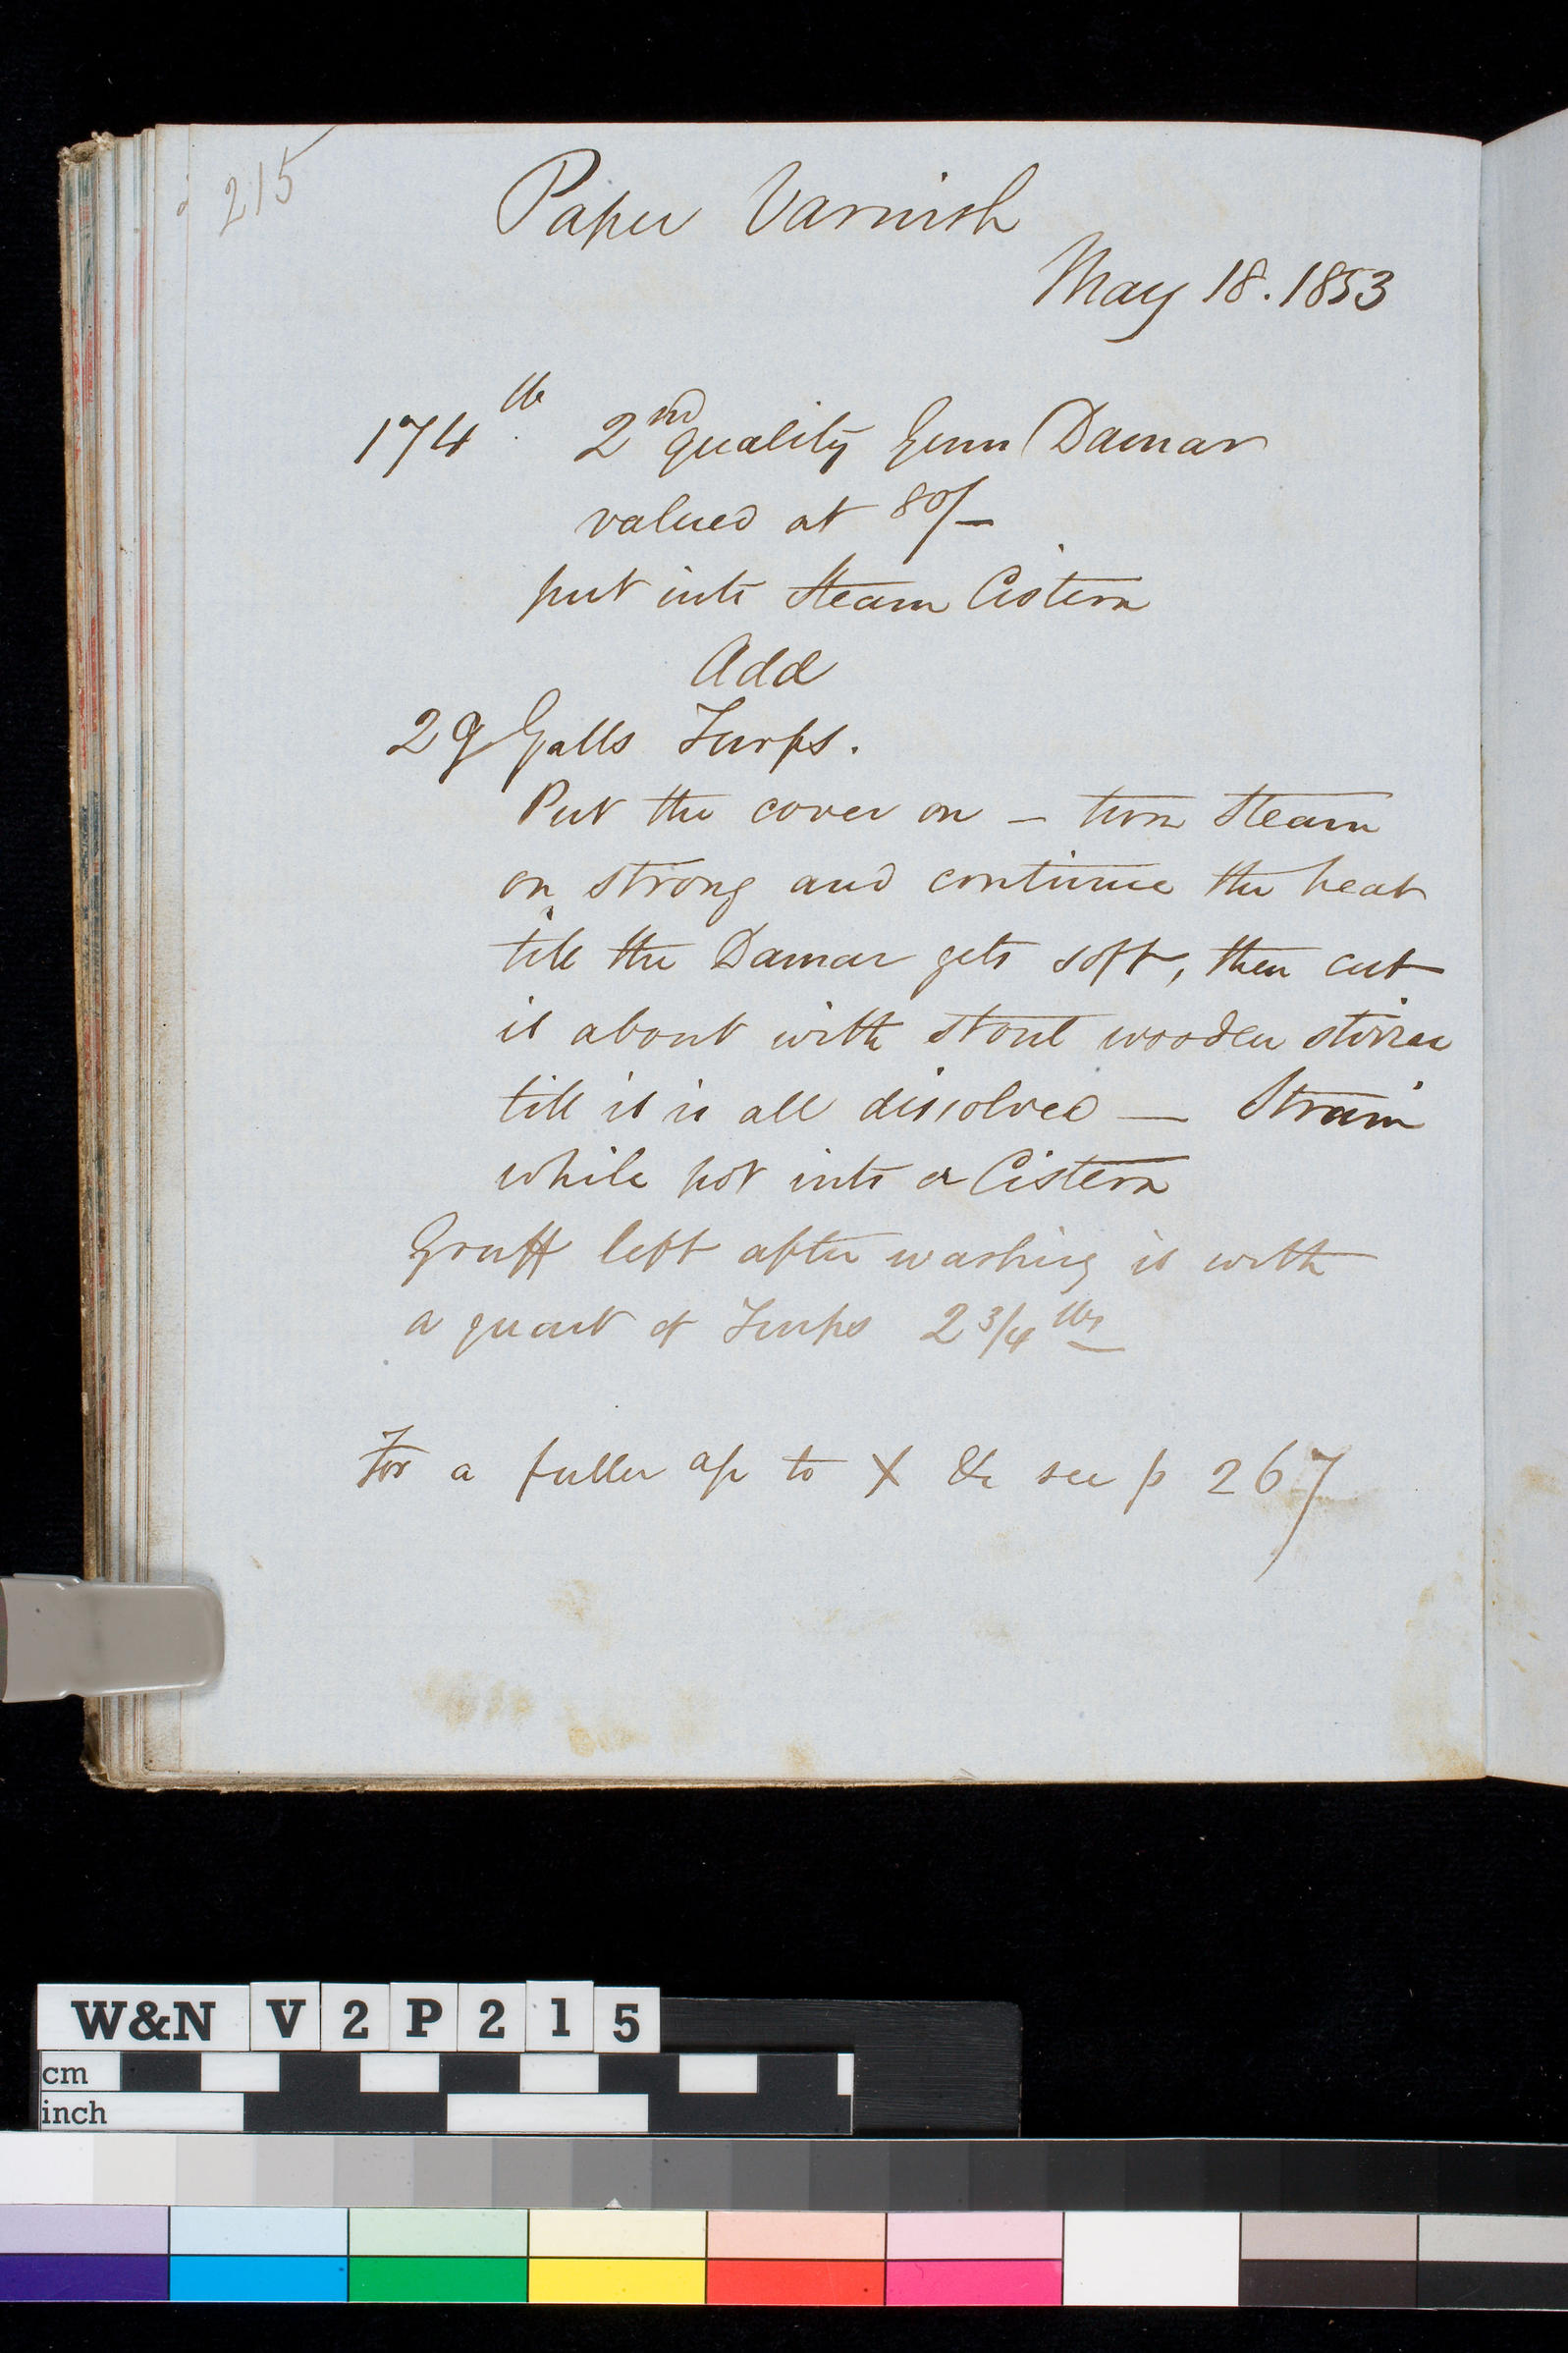 215
Paper Varnish
May 18. 1853
174 lb 2nd quality Gum Damar
valued at 80/-
put into Steam Cistern
Add
29 Galls Turps.
Put the cover on - turn Steam
on strong and continue the heat
till the Damar gets soft, then cut
it about with stout wooden stirrer
till it is all dissolved - Strain
while hot into a Cistern
Gruff left after washing it with
a quart of Turps 2 3/4 lbs
For a fuller to X &c see p 267
W&N V2P215
cm
inch